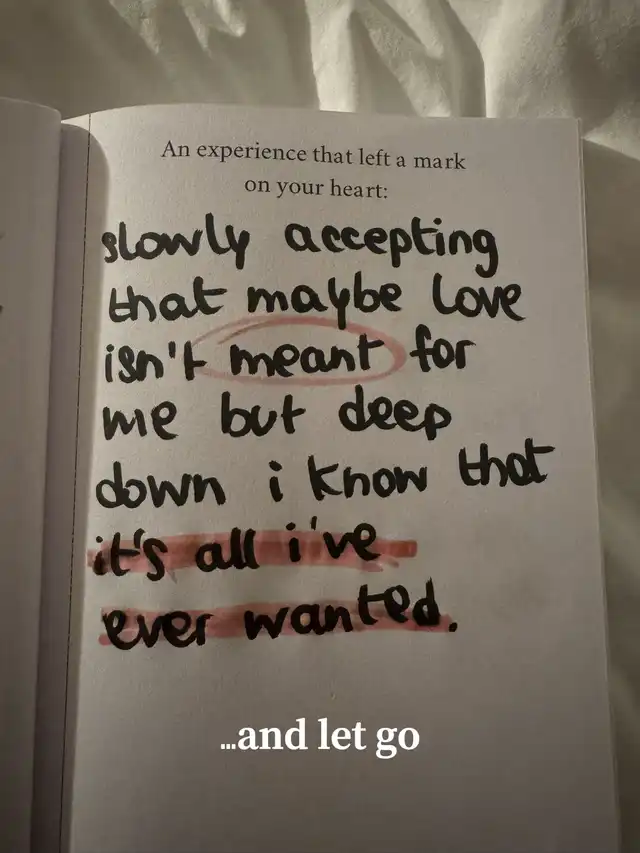 An experience that left a mark
on your heart:
slowly accepting
that maybe love
isn't meant for
me but deep
down i know that
it's all i've
ever wanted.
...and let go